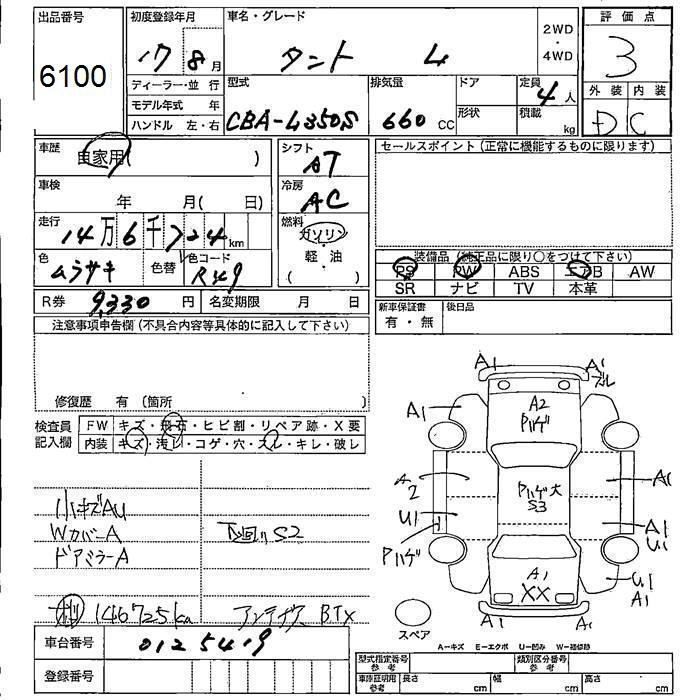 出品番号 初度登録年月 車名・グレード 2WD ・ 4WD 評価点
6100 17 8月 タント L 3
ディーラー・並 行 型式 排気量 ドア 定員 外装 内装
モデル年式 年 4人
ハンドル 左・右 CBA-L350S 660 CC 形状 積載 kg D C
車歴 自家用( ) シフト AT セールスポイント(正常に機能するものに限ります)
車検 年 月( 日) 冷房 AC
走行 14万6千724km 燃料 ガソリン ・ 軽・油 ( )
色 ムラサキ 色替 色コード R49
装備品(純正品に限り○をつけて下さい)
PS PW ABS エアB AW
SR ナビ TV 本革
R券 9,330 円 名変期限 月 日
新車保証書 有・無 後日品
注意事項申告欄(不具合内容等具体的に記入して下さい)
修復歴 有(箇所
検査員記入欄 FW キズ・飛石・ヒビ割・リペア跡・X要
内装 キズ・汚レ・コゲ・穴・スレ・キレ・破レ
小キズAU
Wカバー A 下廻りS2
ドアミラーA
146725km BTX
A1 A1
ズレ
A1 A2
Pハゲ
A2 Pハゲ大 A1
S3
U1 A1
Pハゲ U1
A1 U1
XX A1
A1 A1
スペア
A−キズ E−エクボ U−凹み W−補修跡
車台番号 0125419
登録番号
型式指定番号 参考 類別区分番号 参考
車庫証明用 参考 長さ cm 幅 cm 高さ cm